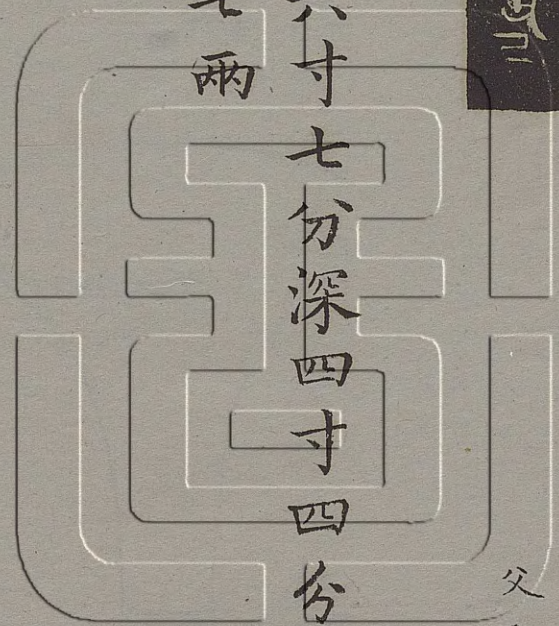 六寸七分深四寸四分
七兩
父